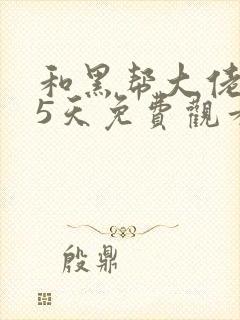 和黑帮大佬
5天免費觀看
殷鼎